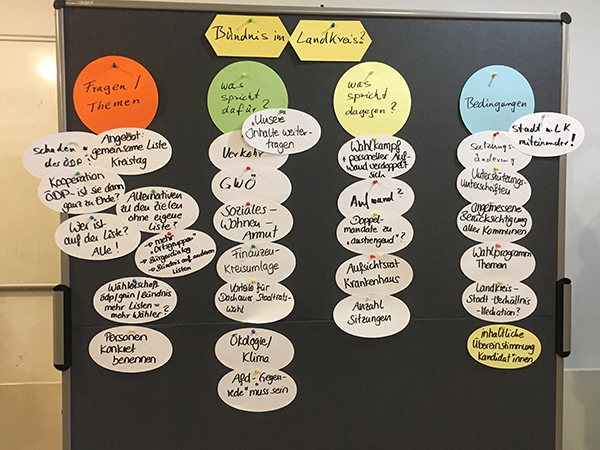 Bündnis im Landkreis?
Fragen /
Themen
Schaden
der ÖDP?
Angebot:
gemeinsame Liste
Kreistag
Kooperation
ÖDP-ist sie dann
ganz zu Ende?
Alternativen
zu den Zielen
ohne eigene
Liste?
Wer ist
auf der Liste?
Alle!
→ mehr
Ortsgruppen
→ Bürgerdialog
→ Bündnis auf anderen
Listen
Wählerschaft
ödp/ghin/Bündnis
mehr Listen =
mehr Wähler?
Personen
konkret
benennen
was
spricht
dafür?
"Unsere
Inhalte weiter-
tragen
Verkehr
GWÖ
Soziales-
Wohnen-
Armut
Finanzen-
Kreisumlage
Vorteile für
Dachaus Stadtrats-
wahl
Ökologie/
Klima
Afd-"Gegen-
rede" muss sein
was
spricht
dagegen?
Wahlkampf
+ personeller Auf-
wand verdoppelt
sich
Aufwand?
Doppel-
mandate zu
"anstrengend"?
Aufsichtsrat
Krankenhaus
Anzahl
Sitzungen
Bedingungen
Stadt u. LK
miteinander!
Satzungs-
änderung
Unterstützungs-
Unterschriften
angemessene
Berücksichtigung
aller Kommunen
Wahlprogramm
Themen
Landkreis-
Stadt-Verhältnis
-Mediation?
inhaltliche
Übereinstimmung
Kandidat*innen